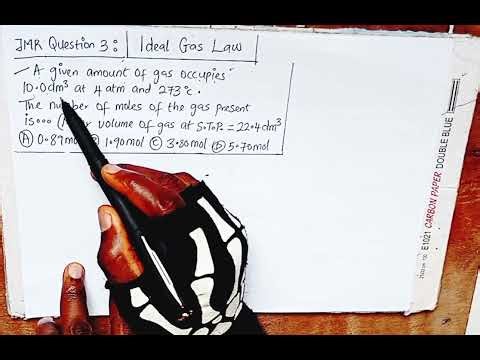 JMR Question 3: Ideal Gas Law
A given amount of gas occupies
10.0dm³ at 4 atm and 273°c.
The number of moles of the gas present
is... volume of gas at S.T.P. = 22.4dm³
(A) 0.89mol 1.90mol (C) 3.80mol (D) 5.70mol
E1021 CARBON PAPER DOUBLE BLUE